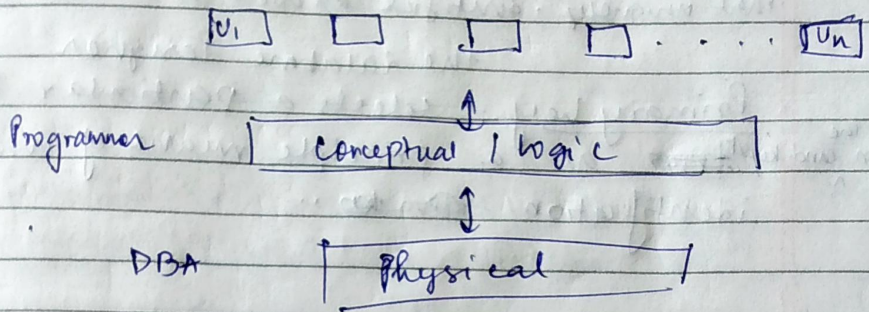 U1 . . . . Un
Programmer Conceptual / Logic
DBA Physical